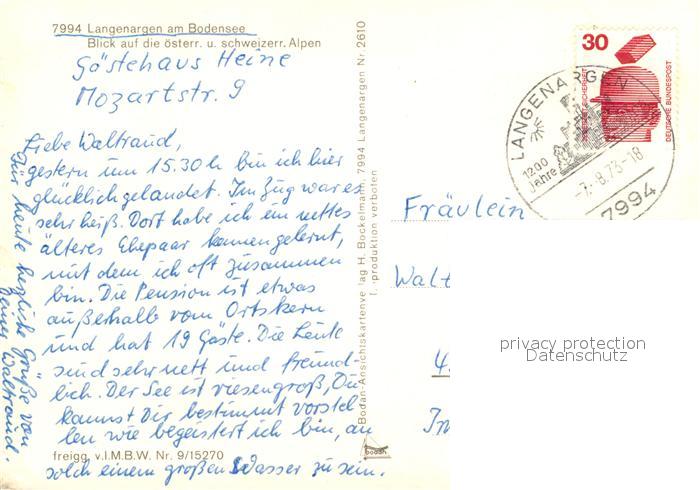 7994 Langenargen am Bodensee
Blick auf die österr. u. schweizerr. Alpen
Gästehaus Heine
Mozartstr. 9
Liebe Waltraud,
gestern um 15.30 h bin ich hier
glücklich gelandet. Im Zug war es
sehr heiß. Dort habe ich ein nettes
älteres Ehepaar kennengelernt,
mit dem ich oft zusammen
bin. Die Pension ist etwas
außerhalb vom Ortskern
und hat 19 Gäste. Die Leute
sind sehr nett und freund-
lich. Der See ist riesengroß, Du
kannst Dir bestimmt vorstel-
len wie begeistert ich bin, an
solch einem großen Wasser zu sein.
Für heute herzliche Grüße von
Deiner Waltraud.
freigg. v. I.M.B.W. Nr. 9/15270
Bodan-Ansichtskartenve lag H. Bockelmann, 7994 Langenargen Nr. 2610
produktion verboten
bodan
30
DEUTSCHE BUNDESPOST
LANGENARGEN
1200
Jahre
-7.-8.73-18
7994
Fräulein
Walt
4.
In
privacy protection
Datenschutz